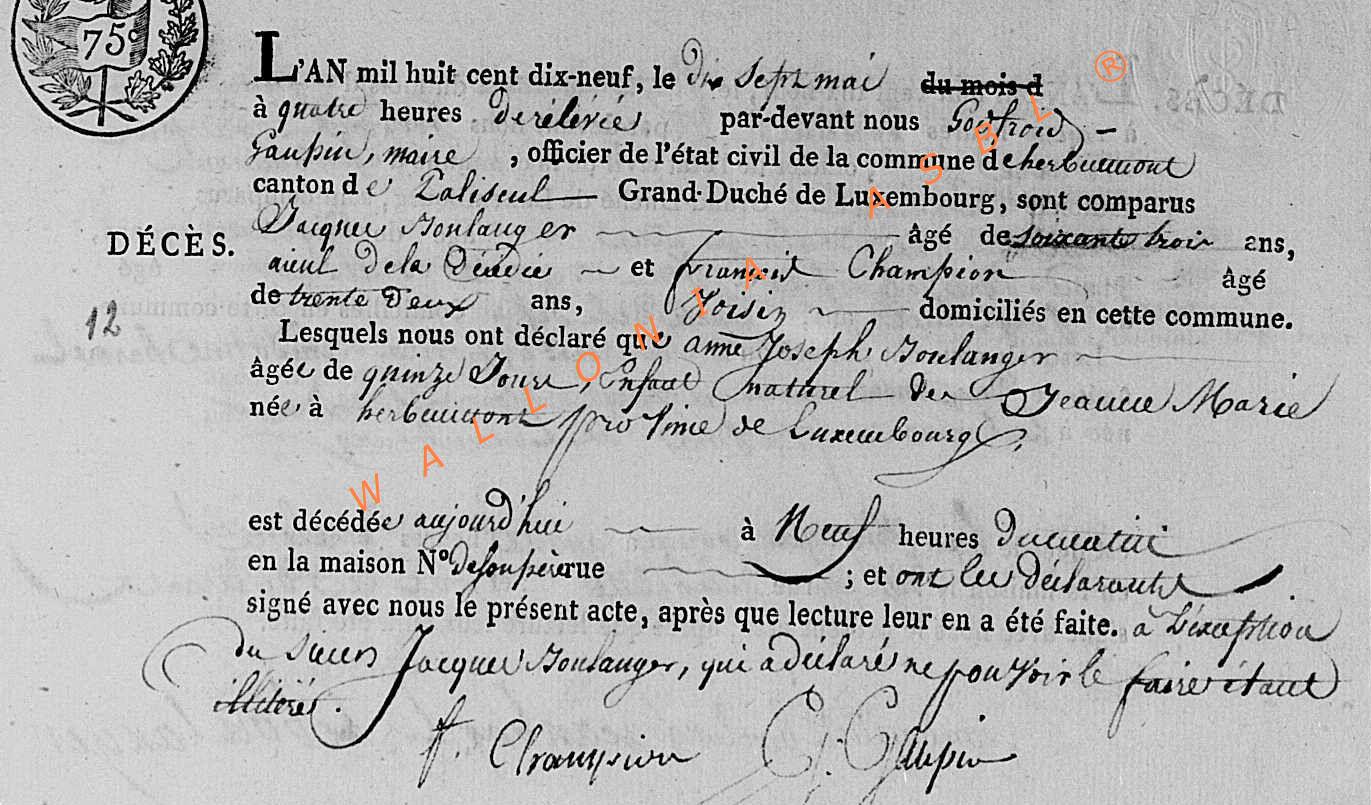 75c
L'AN mil huit cent dix-neuf, le dix sept mai du mois d
à quatre heures de rélévée par-devant nous Godfroid
Gaupin, maire, officier de l'état civil de la commune de herbeumont
canton de Paliseul Grand-Duché de Luxembourg, sont comparus
Jacques Boulanger âgé de soixante trois ans,
DÉCÈS.
aieul de la Décédée et françois Champion âgé
de trente deux ans, Voisin domiciliés en cette commune.
12
Lesquels nous ont déclaré que anne Joseph Boulanger
âgée de quinze Jours, Enfant naturel de Jeanne Marie
née à herbeumont province de Luxembourg,
est décédée aujourd'hui à Neuf heures du matin
en la maison N° de son père rue ; et ont les déclarants
signé avec nous le présent acte, après que lecture leur en a été faite. à L'exception
du Sieur Jacques Boulanger, qui a déclaré ne pouvoir le faire étant
illitéré.
f. Champion G. Gaupin
WALLONIA ASBL ®